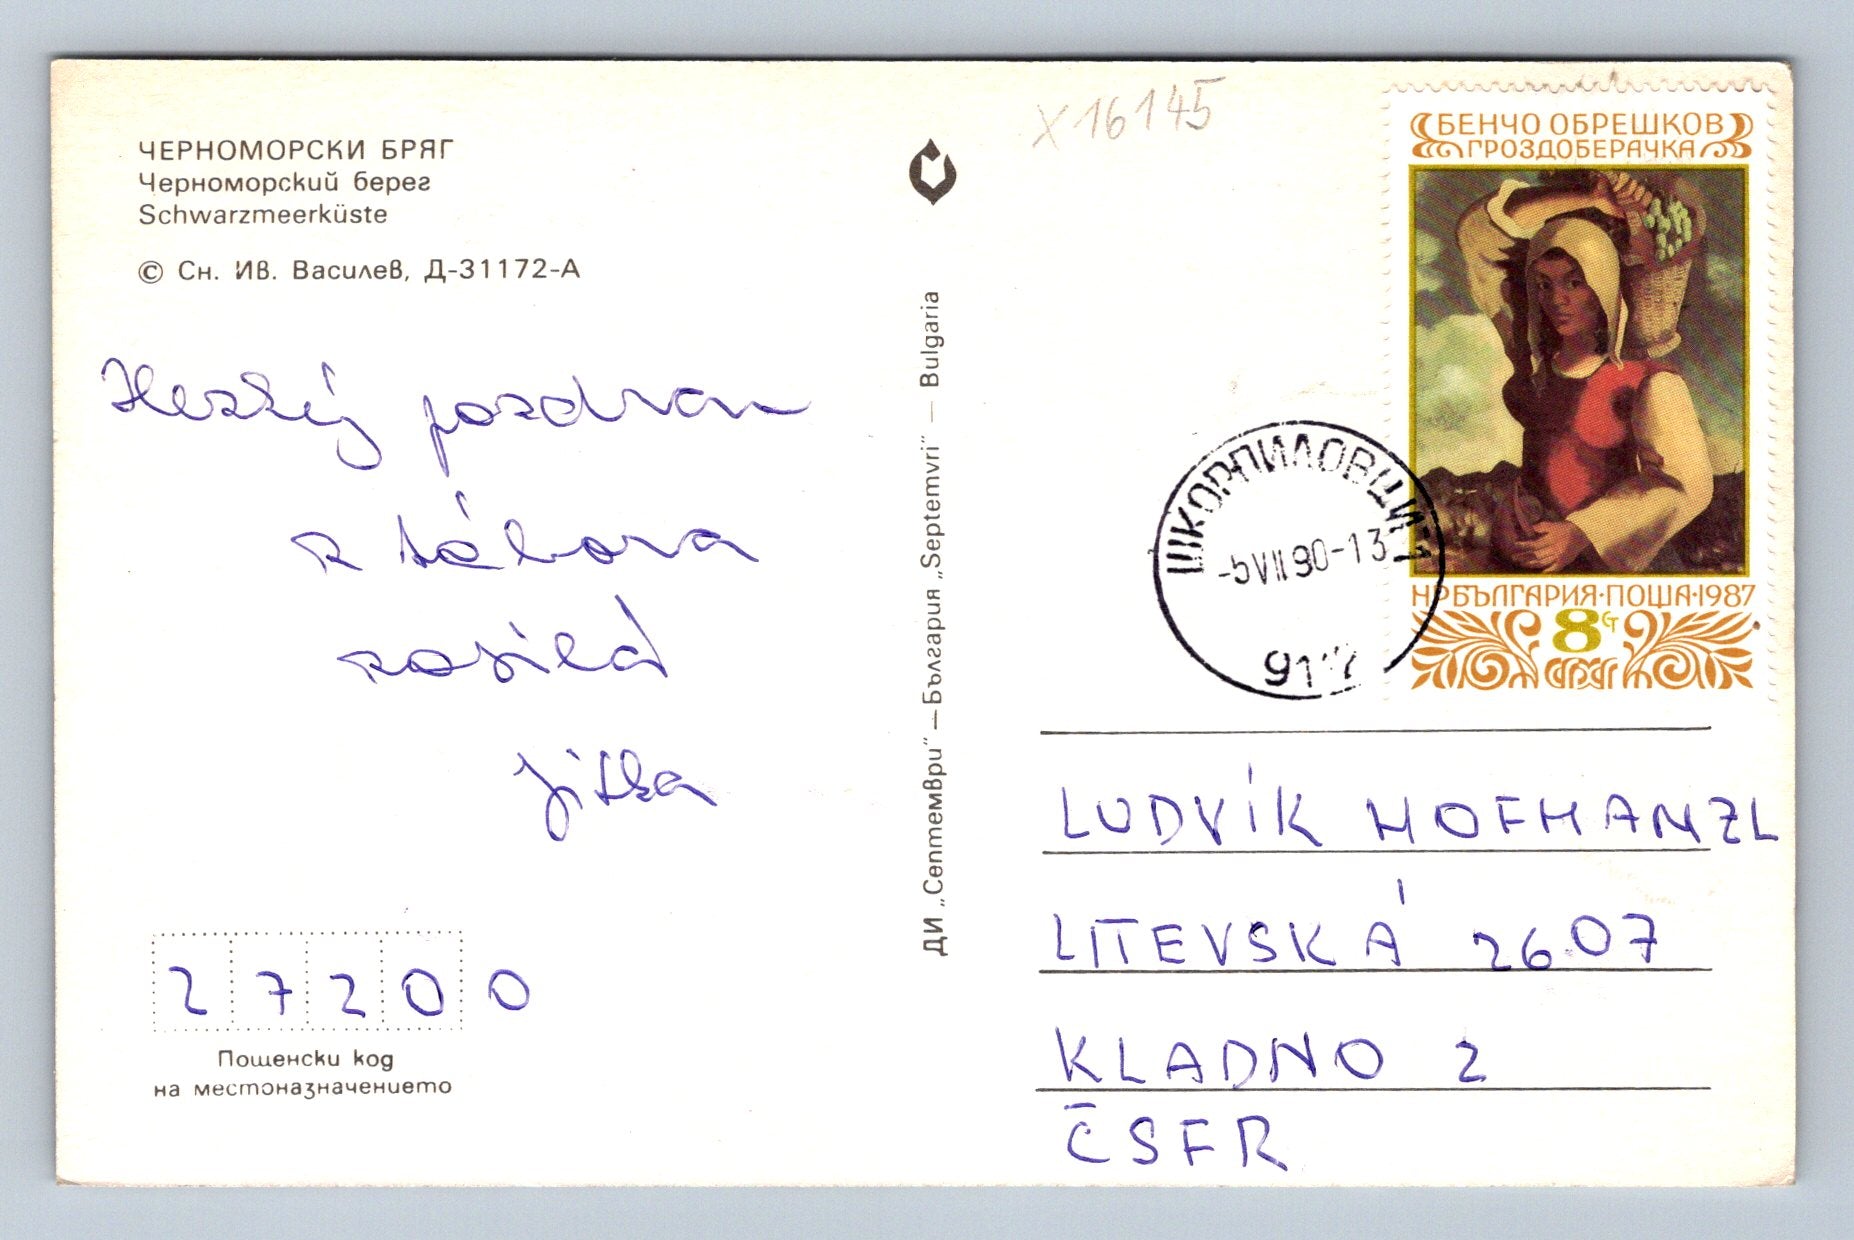 ЧЕРНОМОРСКИ БРЯГ
Черноморский берег
Schwarzmeerküste
© Сн. Ив. Василев, Д-31172-А
Hezký pozdrav
z tábora
zasílá
Jitka
2 7 2 0 0
Пощенски код
на местоназначението
ДИ „Септември“ — България „Septemvri“ — Bulgaria
X 16145
БЕНЧО ОБРЕШКОВ
ГРОЗДОБЕРАЧКА
НРБЪЛГАРИЯ·ПОЩА·1987
8 СТ
ШКОРПИЛОВЦИ
-5 VII 90-13
LUDVÍK HOFMANZL
LITEVSKÁ 2607
KLADNO 2
ČSFR